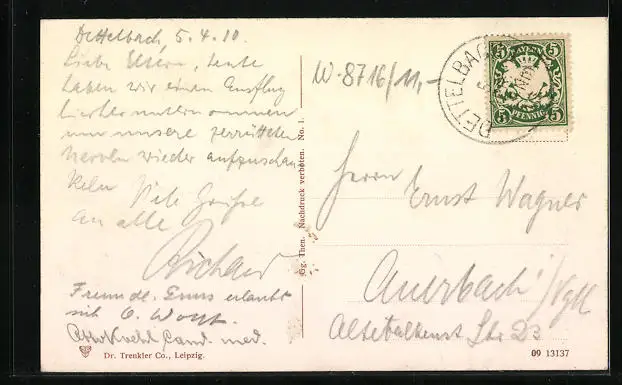 Dettelbach, 5.4.10.
Liebe Eltern, heute
haben wir einen Ausflug
hierher unternommen
um unsere zerrütteten
Nerven wieder aufzuschau
keln Viele Grüße
an alle
Richard
Freundl. Gruss erlaubt
sich O. Wolf.
Otto cand. med.
Dr. Trenkler Co., Leipzig.
Gg. Then. Nachdruck verboten. No. 1.
W-8716/11,-
DETTELBACH
5
BAYERN
5 5
PFENNIG
Herrn Ernst Wagner
Auerbach i/Vgtl
Str. 23
09 13137